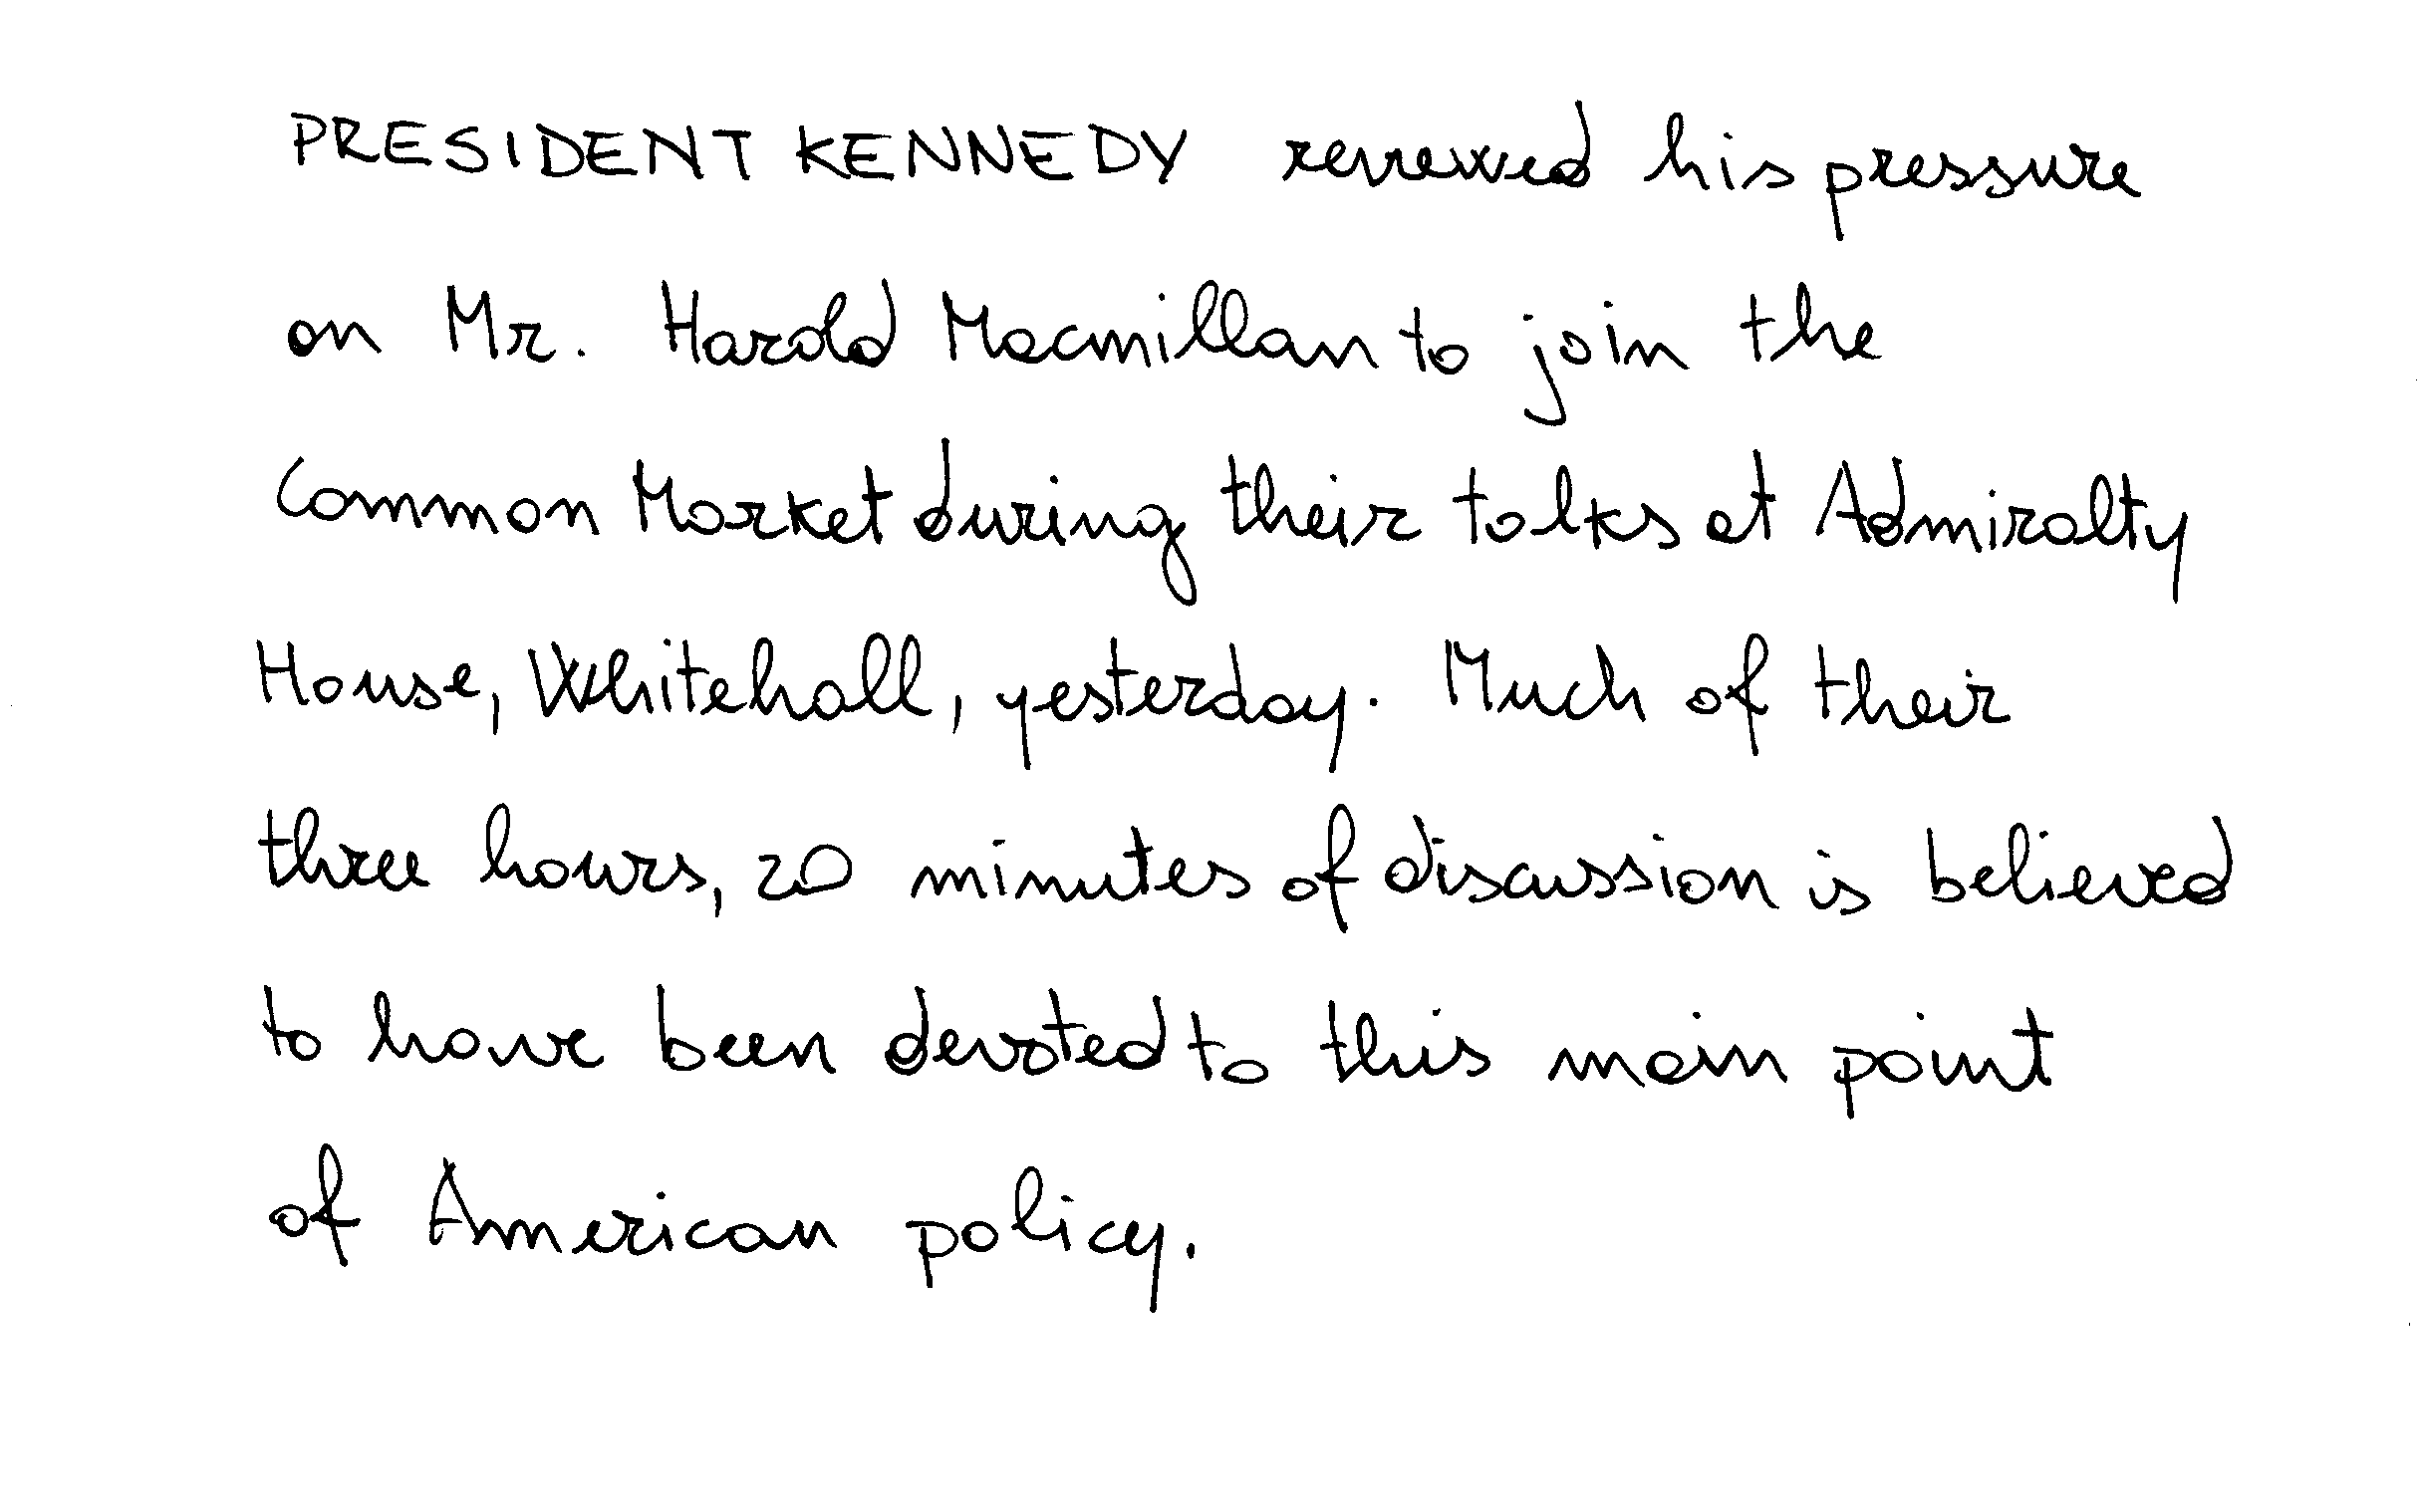 PRESIDENT KENNEDY renewed his pressure
on Mr. Harold Macmillan to join the
Common Market during their talks at Admiralty
House, Whitehall, yesterday. Much of their
three hours, 20 minutes of discussion is believed
to have been devoted to this main point
of American policy.